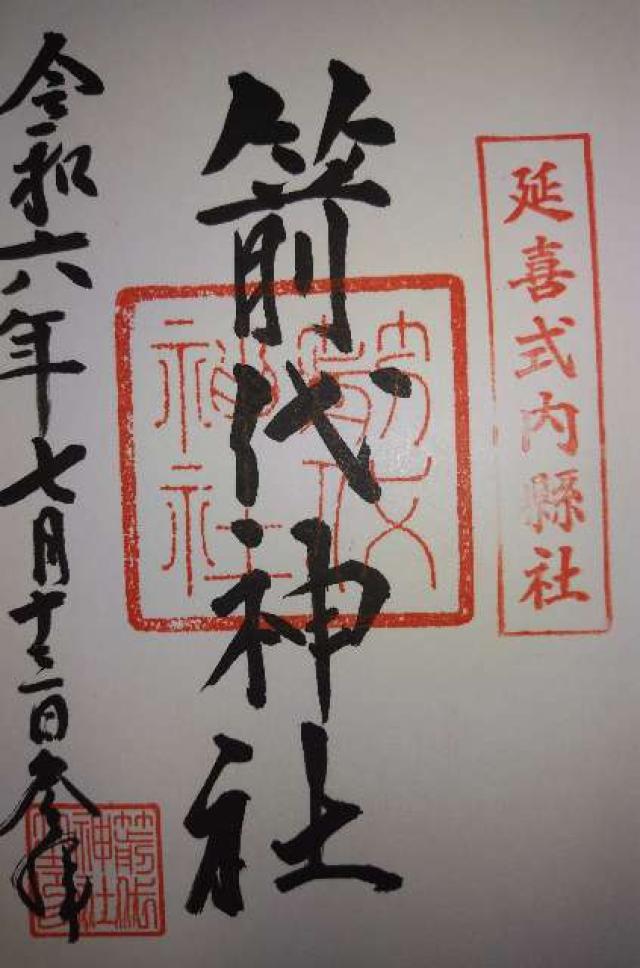 延喜式内縣社
箭代神社
箭代神社
令和六年七月十三日参拝